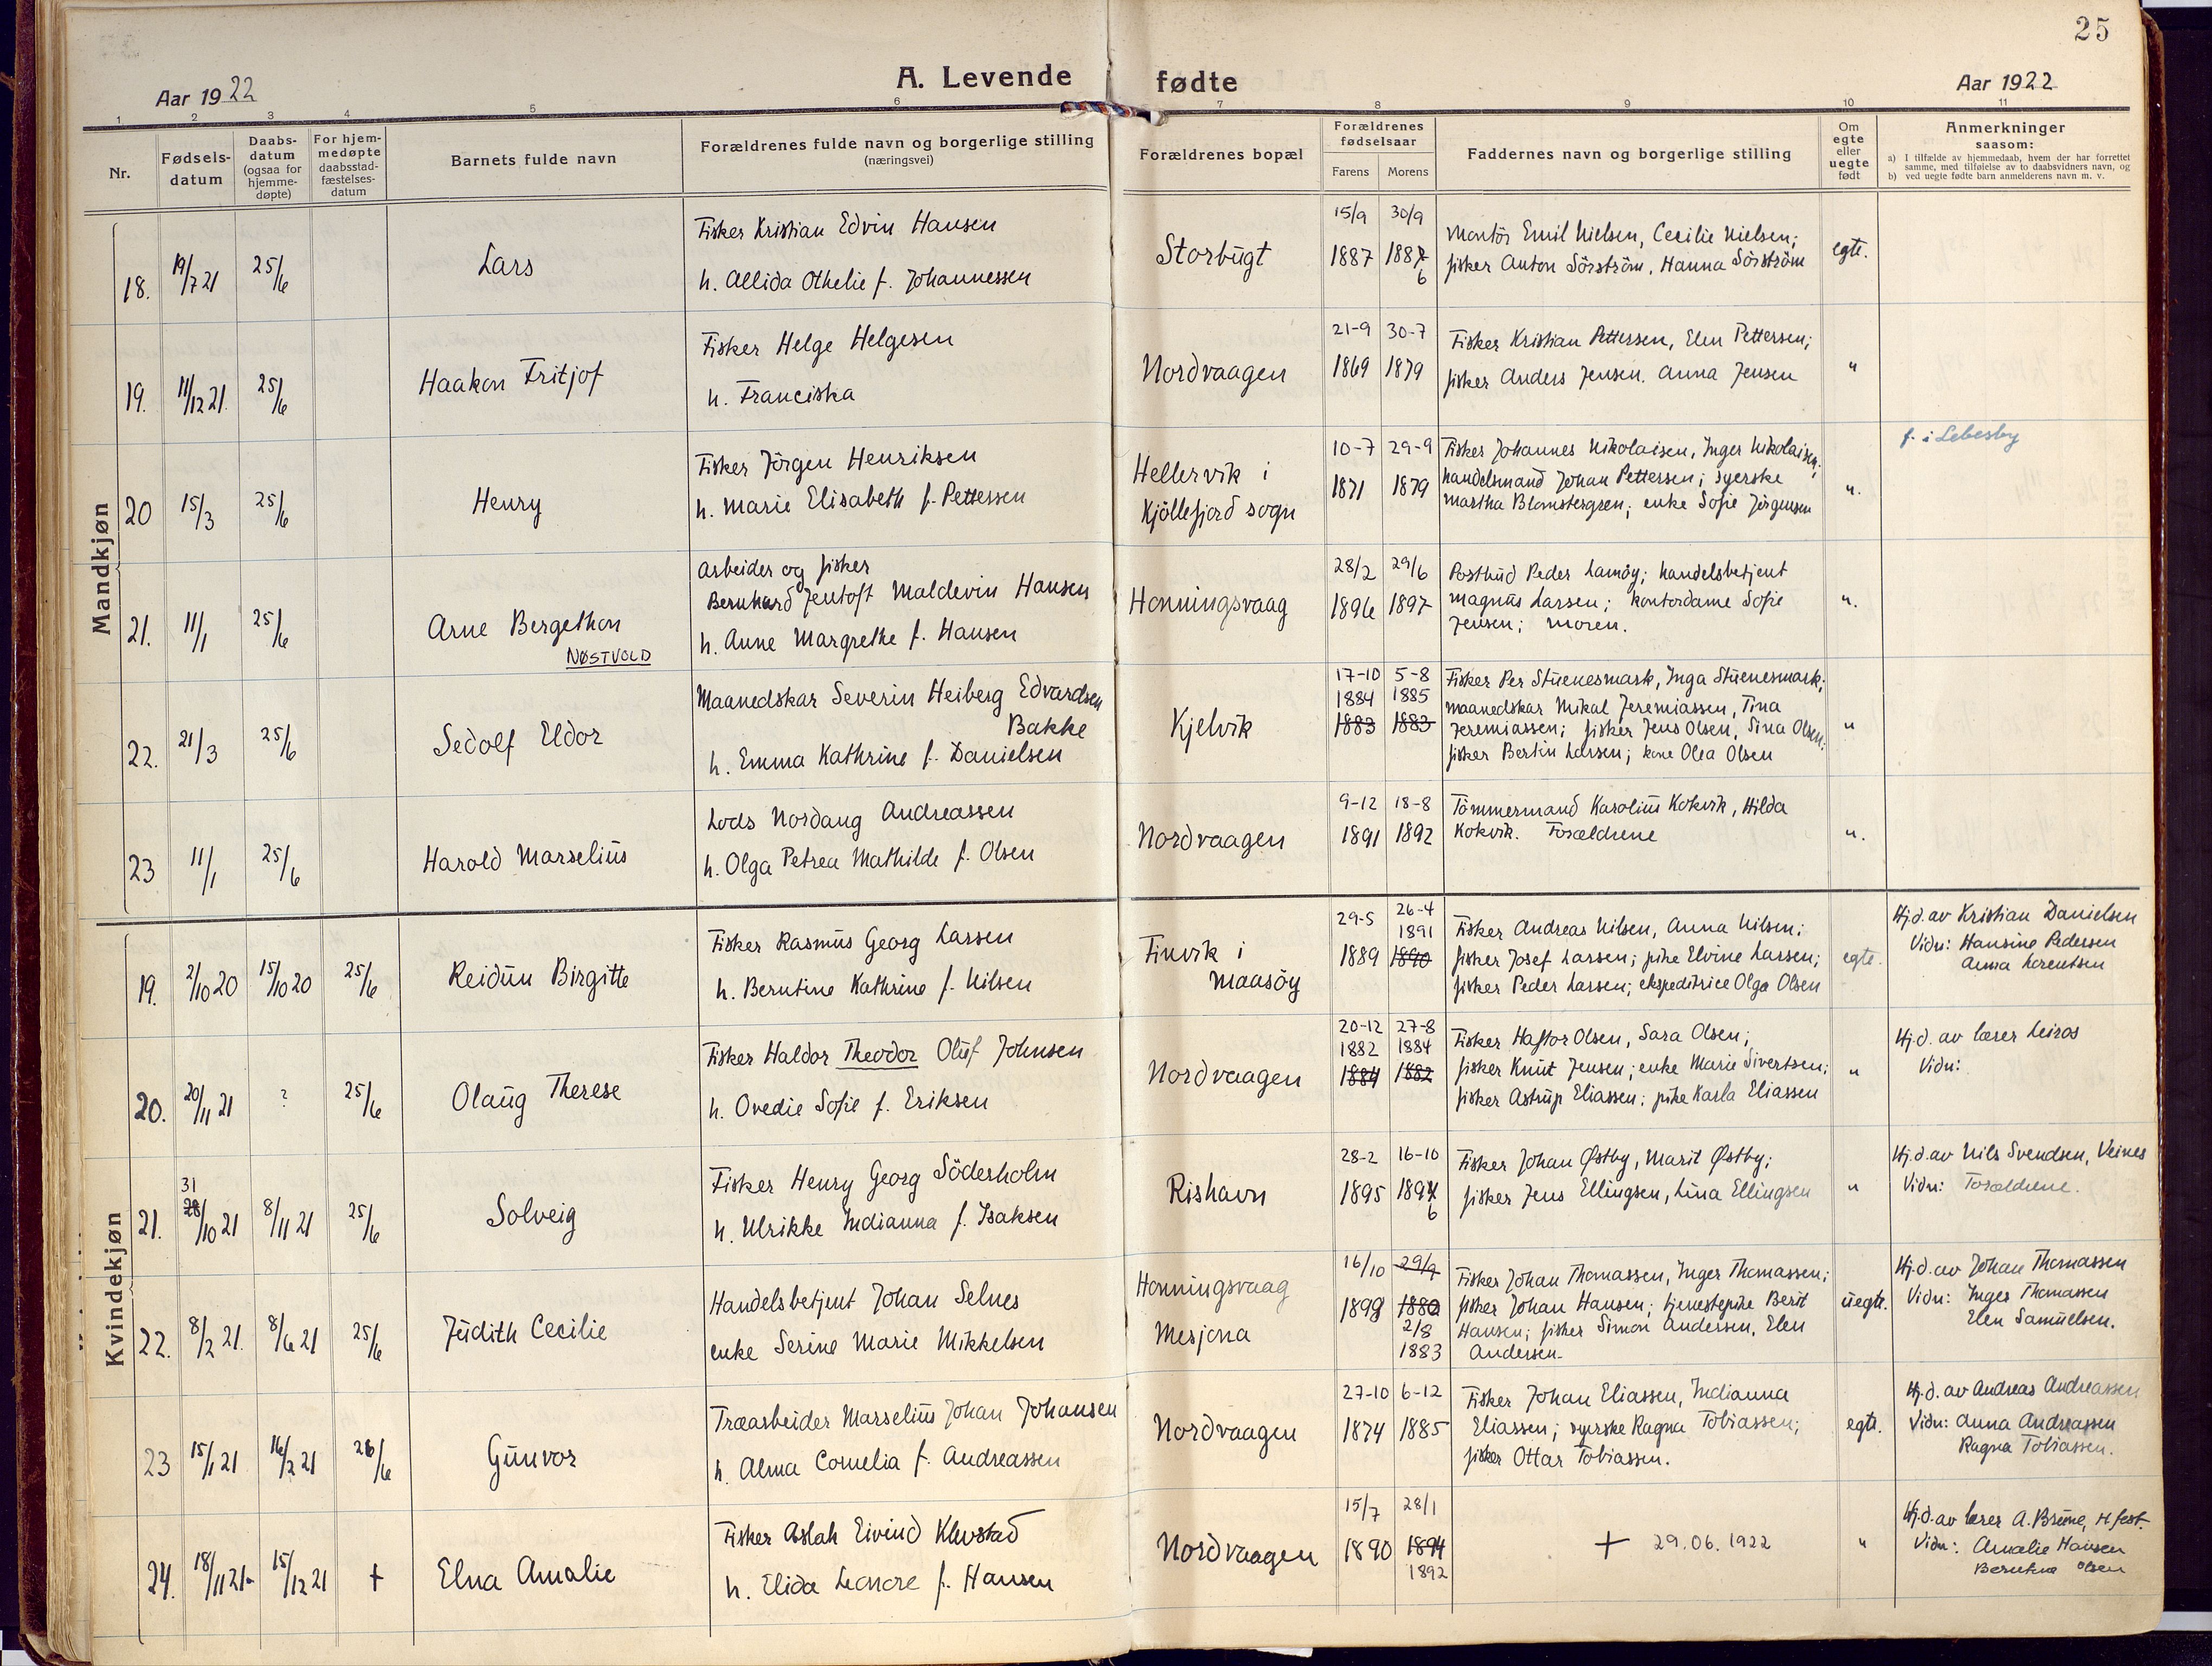 25
A. Levende fødte
Aar 1922
Aar 1922
1 2 3 4 5 6 7 8 9 10 11
Nr.
Fødsels-
datum
Daabs-
datum
(ogsaa for
hjemme-
døpte)
For hjem-
medøpte
daabsstad-
fæstelses-
datum
Barnets fulde navn
Forældrenes fulde navn og borgerlige stilling
(næringsvei)
Forældrenes bopæl
Forældrenes
fødselsaar
Farens Morens
Faddernes navn og borgerlige stilling
Om
egte
eller
uegte
født
Anmerkninger
saasom:
a) I tilfælde av hjemmedaab, hvem der har forrettet
samme, med tilføielse av to daabsvidners navn, og
b) ved uegte fødte barn anmelderens navn m. v.
Mandkjøn
18. 19/7 21 25/6
Lars
Fisker Kristian Edvin Hansen
h. Allida Othelie f. Johannessen
Storbugt
15/9 30/9
1887 1887
6
Montör Emil Nielsen, Cecilie Nielsen;
fisker Anton Sörström, Hanna Sörström
egte.
19. 11/12 21. 25/6
Haakon Fritjof
Fisker Helge Helgesen
h. Franciska
Nordvaagen
21-9 30-7
1869 1879
Fisker Kristian Pettersen, Elen Pettersen;
fisker Anders Jensen. Anna Jensen
"
20 15/3 25/6
Henry
Fisker Jörgen Henriksen
h. Marie Elisabeth f. Pettersen
Hellervik i
Kjöllefjord sogn
10-7 29-9
1871 1879
Fisker Johannes Nikolaisen, Inger Nikolaisen;
handelsmand Johan Pettersen; syerske
Martha Blomstergren; enke Sofie Jörgensen
".
f. i Lebesby
21. 11/1 25/6
Arne Bergethon
NØSTVOLD
Arbeider og fisker
Bernhard Jentoft Maldevin Hansen
h. Anne Margrethe f. Hansen
Honningsvaag
28/2 29/6
1896 1897
Postbud Peder Lamöy; handelsbetjent
Magnus Larsen; kontordame Sofie
Jensen; moren.
".
22. 21/3 25/6
Sedolf Eldor
Maanedskar Severin Heiberg Edvardsen
Bakke
h. Emma Kathrine f. Danielsen
Kjelvik
17-10 5-8
1884 1885
1883 1883
Fisker Per Stuenesmark, Inga Stuenesmark;
maanedskar Mikal Jeremiassen, Tina
Jeremiassen; fisker Jens Olsen, Sina Olsen;
fisker Bertin Larsen; kone Olea Olsen
"
23 11/1 25/6
Harold Marselius
Lods Nordang Andreassen
h. Olga Petrea Mathilde f. Olsen
Nordvaagen
9-12 18-8
1891 1892
Tömmermand Karolius Kokvik, Hilda
Kokvik. Forældrene
".
Kvindekjøn
19. 2/10 20 15/10 20 25/6
Reidun Birgitte
Fisker Rasmus Georg Larsen
h. Berntine Kathrine f. Nilsen
Finvik i
Maasöy
29-5 26-4
1891
1889 1890
Fisker Andreas Nilsen, Anna Nilsen;
fisker Josef Larsen; pike Elvine Larsen;
fisker Peder Larsen; ekspeditrice Olga Olsen
egte.
Hj.d. av Kristian Danielsen
Vidn: Hansine Pedersen
Anna Lorentsen
20. 20/11 21 ? 25/6
Olaug Therese
Fisker Haldor Theodor Oluf Johnsen
h. Ovedie Sofie f. Eriksen
Nordvaagen
20-12 27-8
1882 1884
1884 1882
Fisker Haftor Olsen, Sara Olsen;
fisker Knut Jensen; enke Marie Sivertsen;
fisker Astrup Eliassen; pike Karla Eliassen
"
Hj.d. av lærer Leiros
Vidn:
31
21. 28/10 21 8/11 21 25/6
Solveig
Fisker Henry Georg Söderholm
h. Ulrikke Indianna f. Isaksen
Rishavn
28-2 16-10
1895 1894
6
Fisker Johan Østby, Marit Østby;
fisker Jens Ellingsen, Lina Ellingsen
"
Hj.d. av Nils Svendsen, Veines
Vidn: Forældrene.
22. 8/2 21. 8/6 21 25/6
Judith Cecilie
Handelsbetjent Johan Selnes
enke Serine Marie Mikkelsen
Honningsvaag
Mesjona
16/10 29/9
1899 1880
2/8
1883
Fisker Johan Thomassen, Inger Thomassen;
fisker Johan Hansen; tjenestepike Berit
Hansen; fisker Simon Andersen, Elen
Andersen.
uegte.
Hj.d. av Johan Thomassen
Vidn: Inger Thomassen
Elen Samuelsen.
23 15/1 21 16/2 21 26/6
Gunvor
Træarbeider Marselius Johan Johansen
h. Alma Cornelia f. Andreassen
Nordvaagen
27-10 6-12
1874 1885
Fisker Johan Eliassen, Indianna
Eliassen; syerske Ragna Tobiassen;
fisker Ottar Tobiassen.
egte.
Hj.d. av Andreas Andreassen
Vidn: Anna Andreassen
Ragna Tobiassen.
24. 18/11 21. 15/12 21 +
Elna Amalie
Fisker Aslak Eivind Klevstad
h. Elida Leonore f. Hansen
Nordvaagen
15/7 28/1
1890 1894
1892
+ 29.06.1922
"
Hj.d. av lærer A. Brune, H.fest.
Vidn: Amalie Hansen
Berntine Olsen